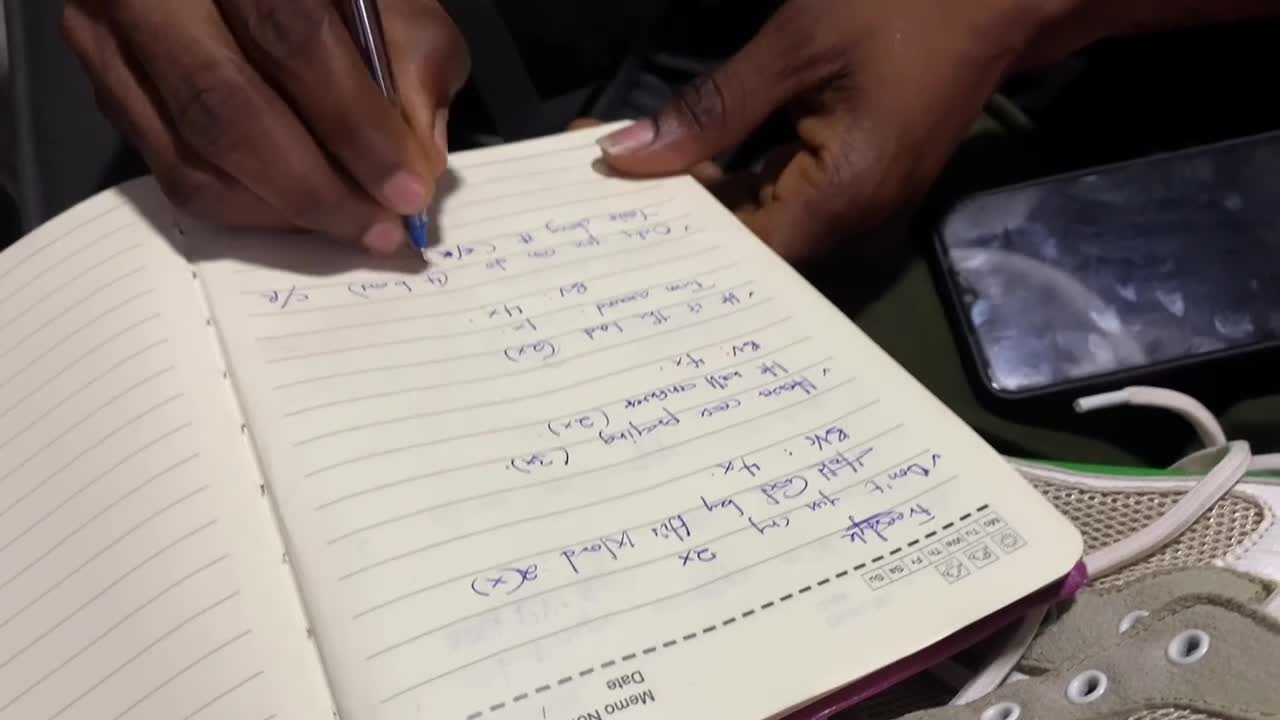 Memo No.
Date /
Mo Tu We Th Fr Sa Su
Freestyle
Don't you cry 2x
Hold God by His Word 2(x)
BV: 4x.
Have can praying (2x)
He will answer (2x)
BV: 4x.
He is the Lord (2x)
Turn around 1x.
BV: 4x.
(4 bars) C/R
Only you can do